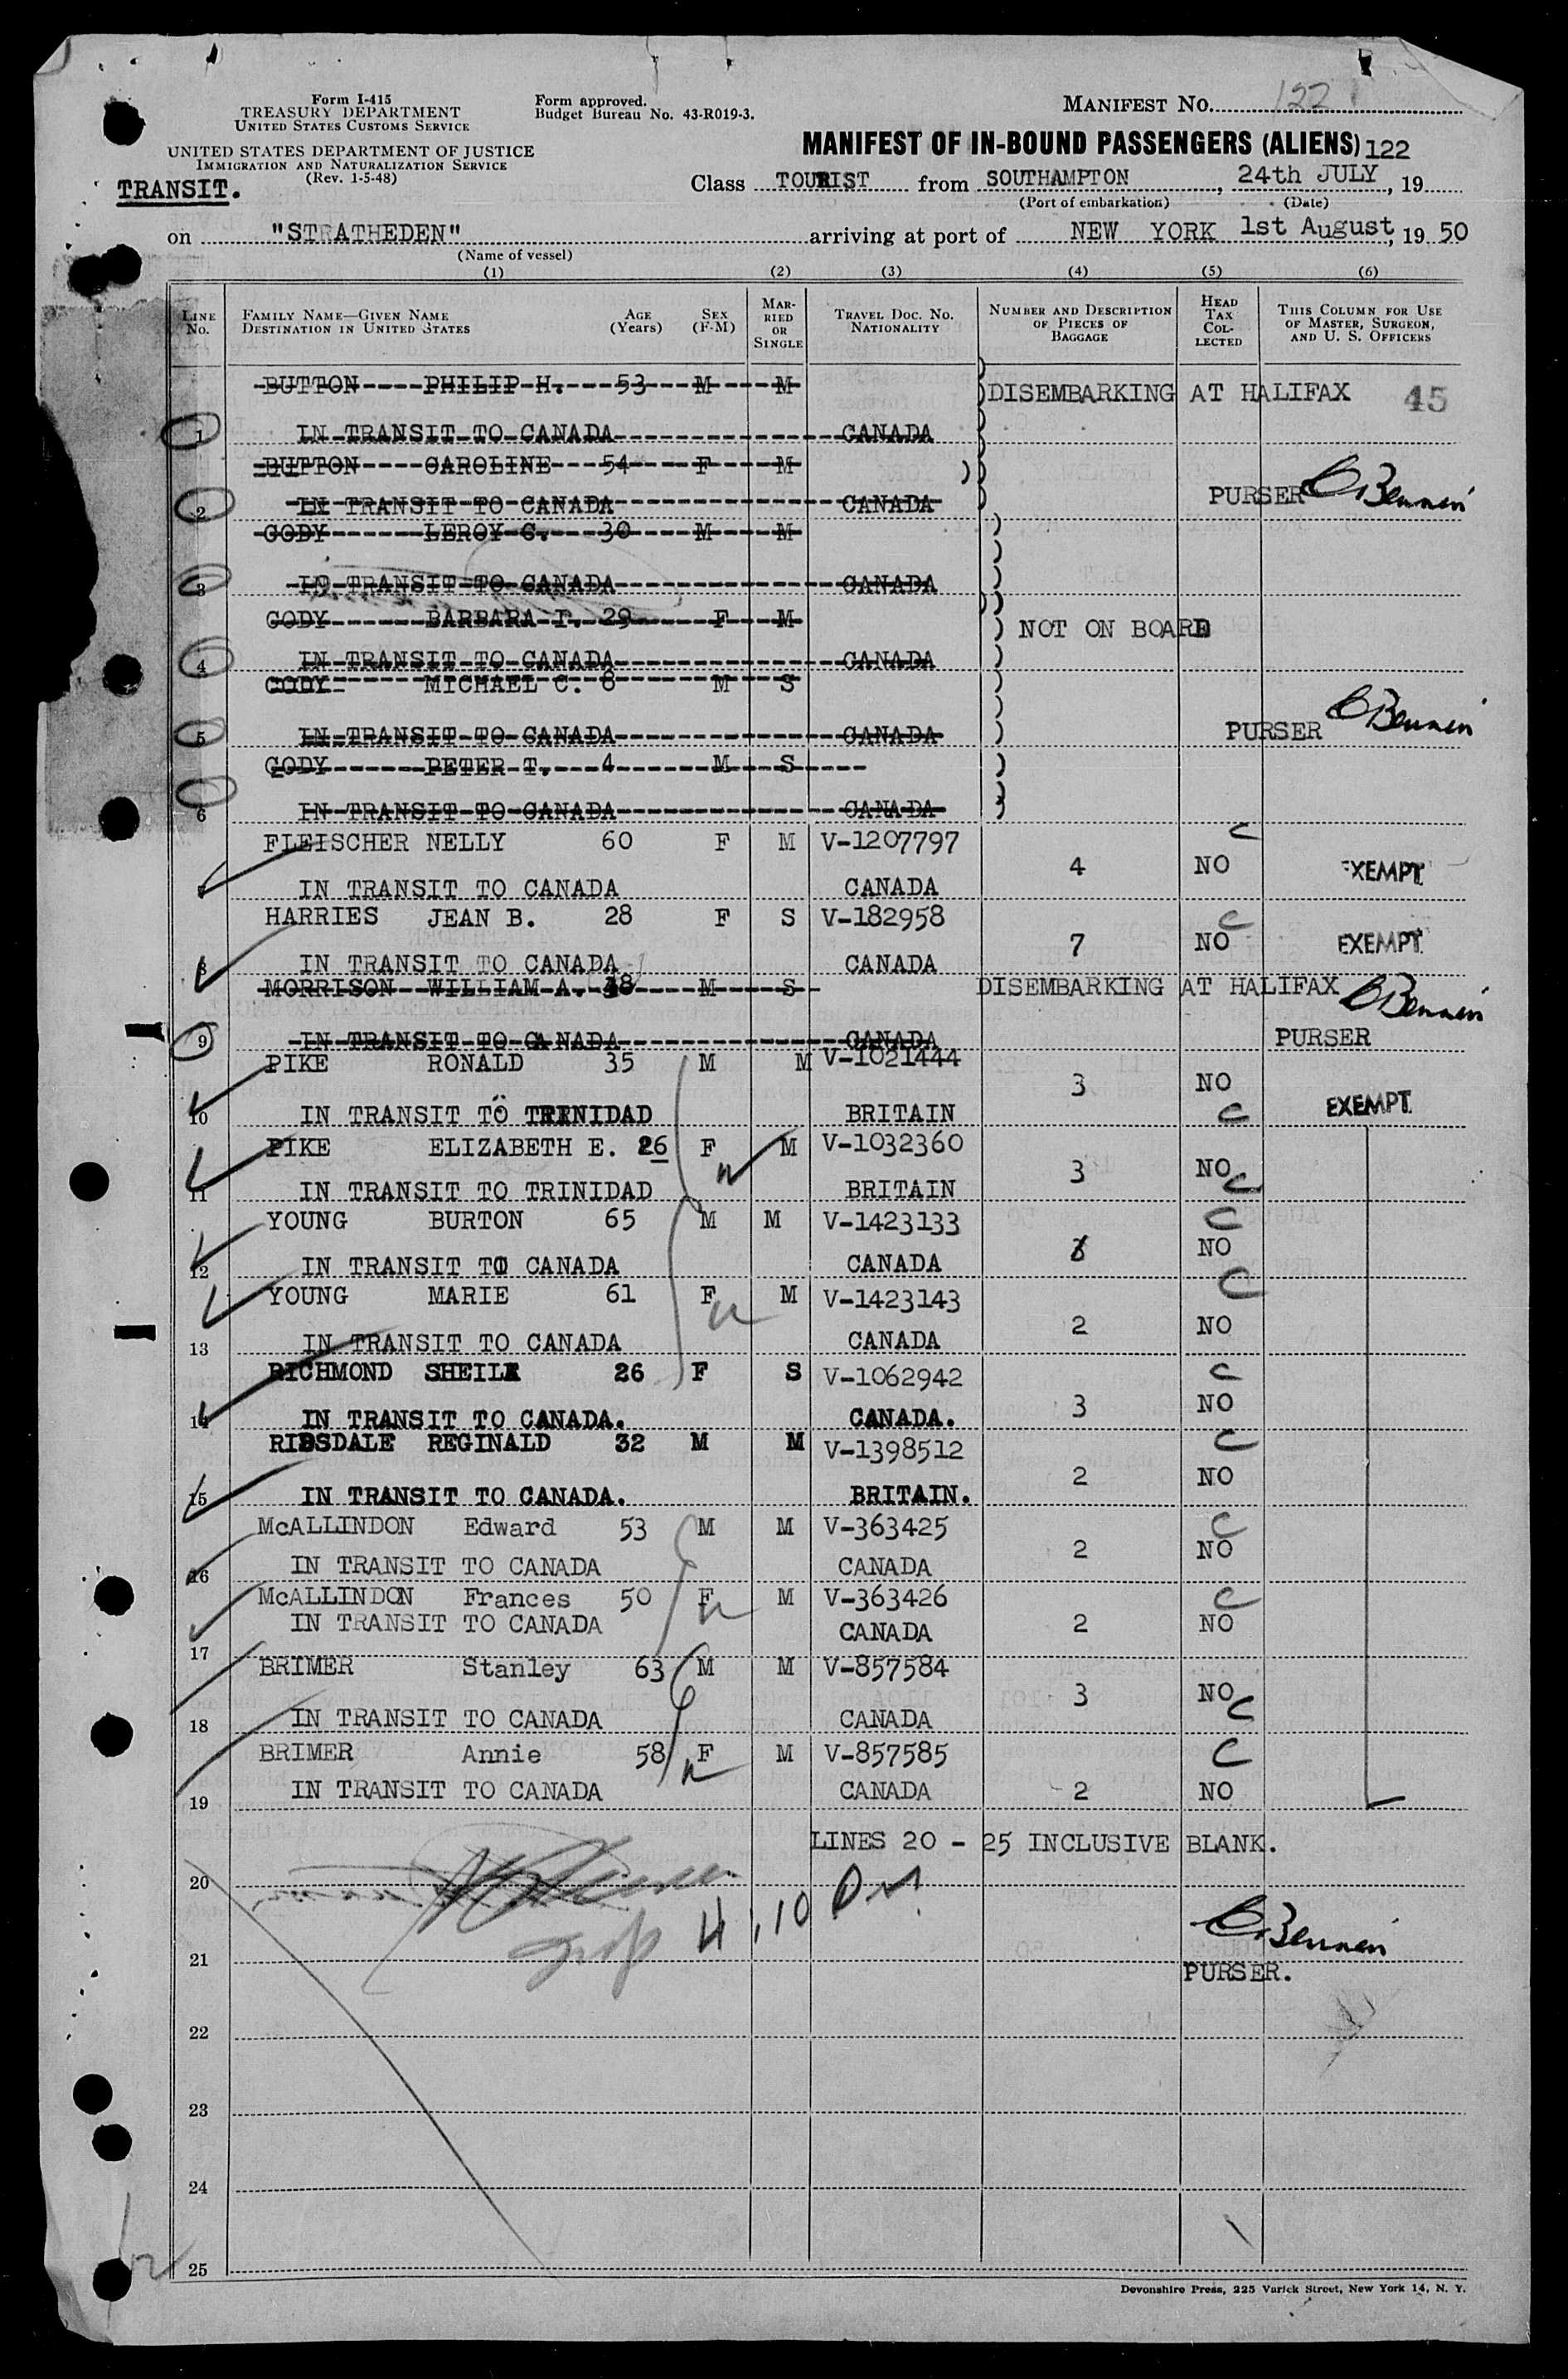 Form I-415
TREASURY DEPARTMENT
UNITED STATES CUSTOMS SERVICE
UNITED STATES DEPARTMENT OF JUSTICE
IMMIGRATION AND NATURALIZATION SERVICE
(Rev. 1-5-48)
TRANSIT.
Form approved.
Budget Bureau No. 43-R019-3.
MANIFEST No. 122
MANIFEST OF IN-BOUND PASSENGERS (ALIENS) 122
Class TOURIST from SOUTHAMPTON, 24th JULY, 19
(Port of embarkation) (Date)
on "STRATHEDEN" arriving at port of NEW YORK 1st August, 19 50
(Name of vessel)
(1) (2) (3) (4) (5) (6)
LINE No. FAMILY NAME—GIVEN NAME DESTINATION IN UNITED STATES AGE (Years) SEX (F-M) MARRIED OR SINGLE TRAVEL DOC. No. NATIONALITY NUMBER AND DESCRIPTION OF PIECES OF BAGGAGE HEAD TAX COLLECTED THIS COLUMN FOR USE OF MASTER, SURGEON, AND U. S. OFFICERS
BUTTON PHILIP H. 53 M M DISEMBARKING AT HALIFAX 45
1 IN TRANSIT TO CANADA CANADA
BUTTON CAROLINE 54 F M
2 IN TRANSIT TO CANADA CANADA PURSER
CODY LEROY C. 30 M M
3 IN TRANSIT TO CANADA CANADA
CODY BARBARA T. 29 F M NOT ON BOARD
4 IN TRANSIT TO CANADA CANADA
CODY MICHAEL C. 8 M S
5 IN TRANSIT TO CANADA CANADA PURSER
CODY PETER T. 4 M S
6 IN TRANSIT TO CANADA CANADA
FLEISCHER NELLY 60 F M V-1207797 4 NO C EXEMPT
IN TRANSIT TO CANADA CANADA
HARRIES JEAN B. 28 F S V-182958 7 NO C EXEMPT
8 IN TRANSIT TO CANADA CANADA
MORRISON WILLIAM A. 18 M S DISEMBARKING AT HALIFAX
9 IN TRANSIT TO CANADA CANADA PURSER
PIKE RONALD 35 M M V-1021444 3 NO C EXEMPT
10 IN TRANSIT TO TRINIDAD BRITAIN
PIKE ELIZABETH E. 26 F M V-1032360 3 NO C
11 IN TRANSIT TO TRINIDAD BRITAIN
YOUNG BURTON 65 M M V-1423133 NO C
12 IN TRANSIT TO CANADA CANADA
YOUNG MARIE 61 F M V-1423143 2 NO C
13 IN TRANSIT TO CANADA CANADA
RICHMOND SHEILA 26 F S V-1062942 3 NO C
14 IN TRANSIT TO CANADA. CANADA.
RIBSDALE REGINALD 32 M M V-1398512 2 NO C
15 IN TRANSIT TO CANADA. BRITAIN.
McALLINDON Edward 53 M M V-363425 2 NO C
16 IN TRANSIT TO CANADA CANADA
McALLINDON Frances 50 F M V-363426 2 NO C
17 IN TRANSIT TO CANADA CANADA
BRIMER Stanley 63 M M V-857584 3 NO C
18 IN TRANSIT TO CANADA CANADA
BRIMER Annie 58 F M V-857585 2 NO C
19 IN TRANSIT TO CANADA CANADA
LINES 20 - 25 INCLUSIVE BLANK.
20
21
PURSER.
22
23
24
25
Devonshire Press, 225 Varick Street, New York 14, N. Y.